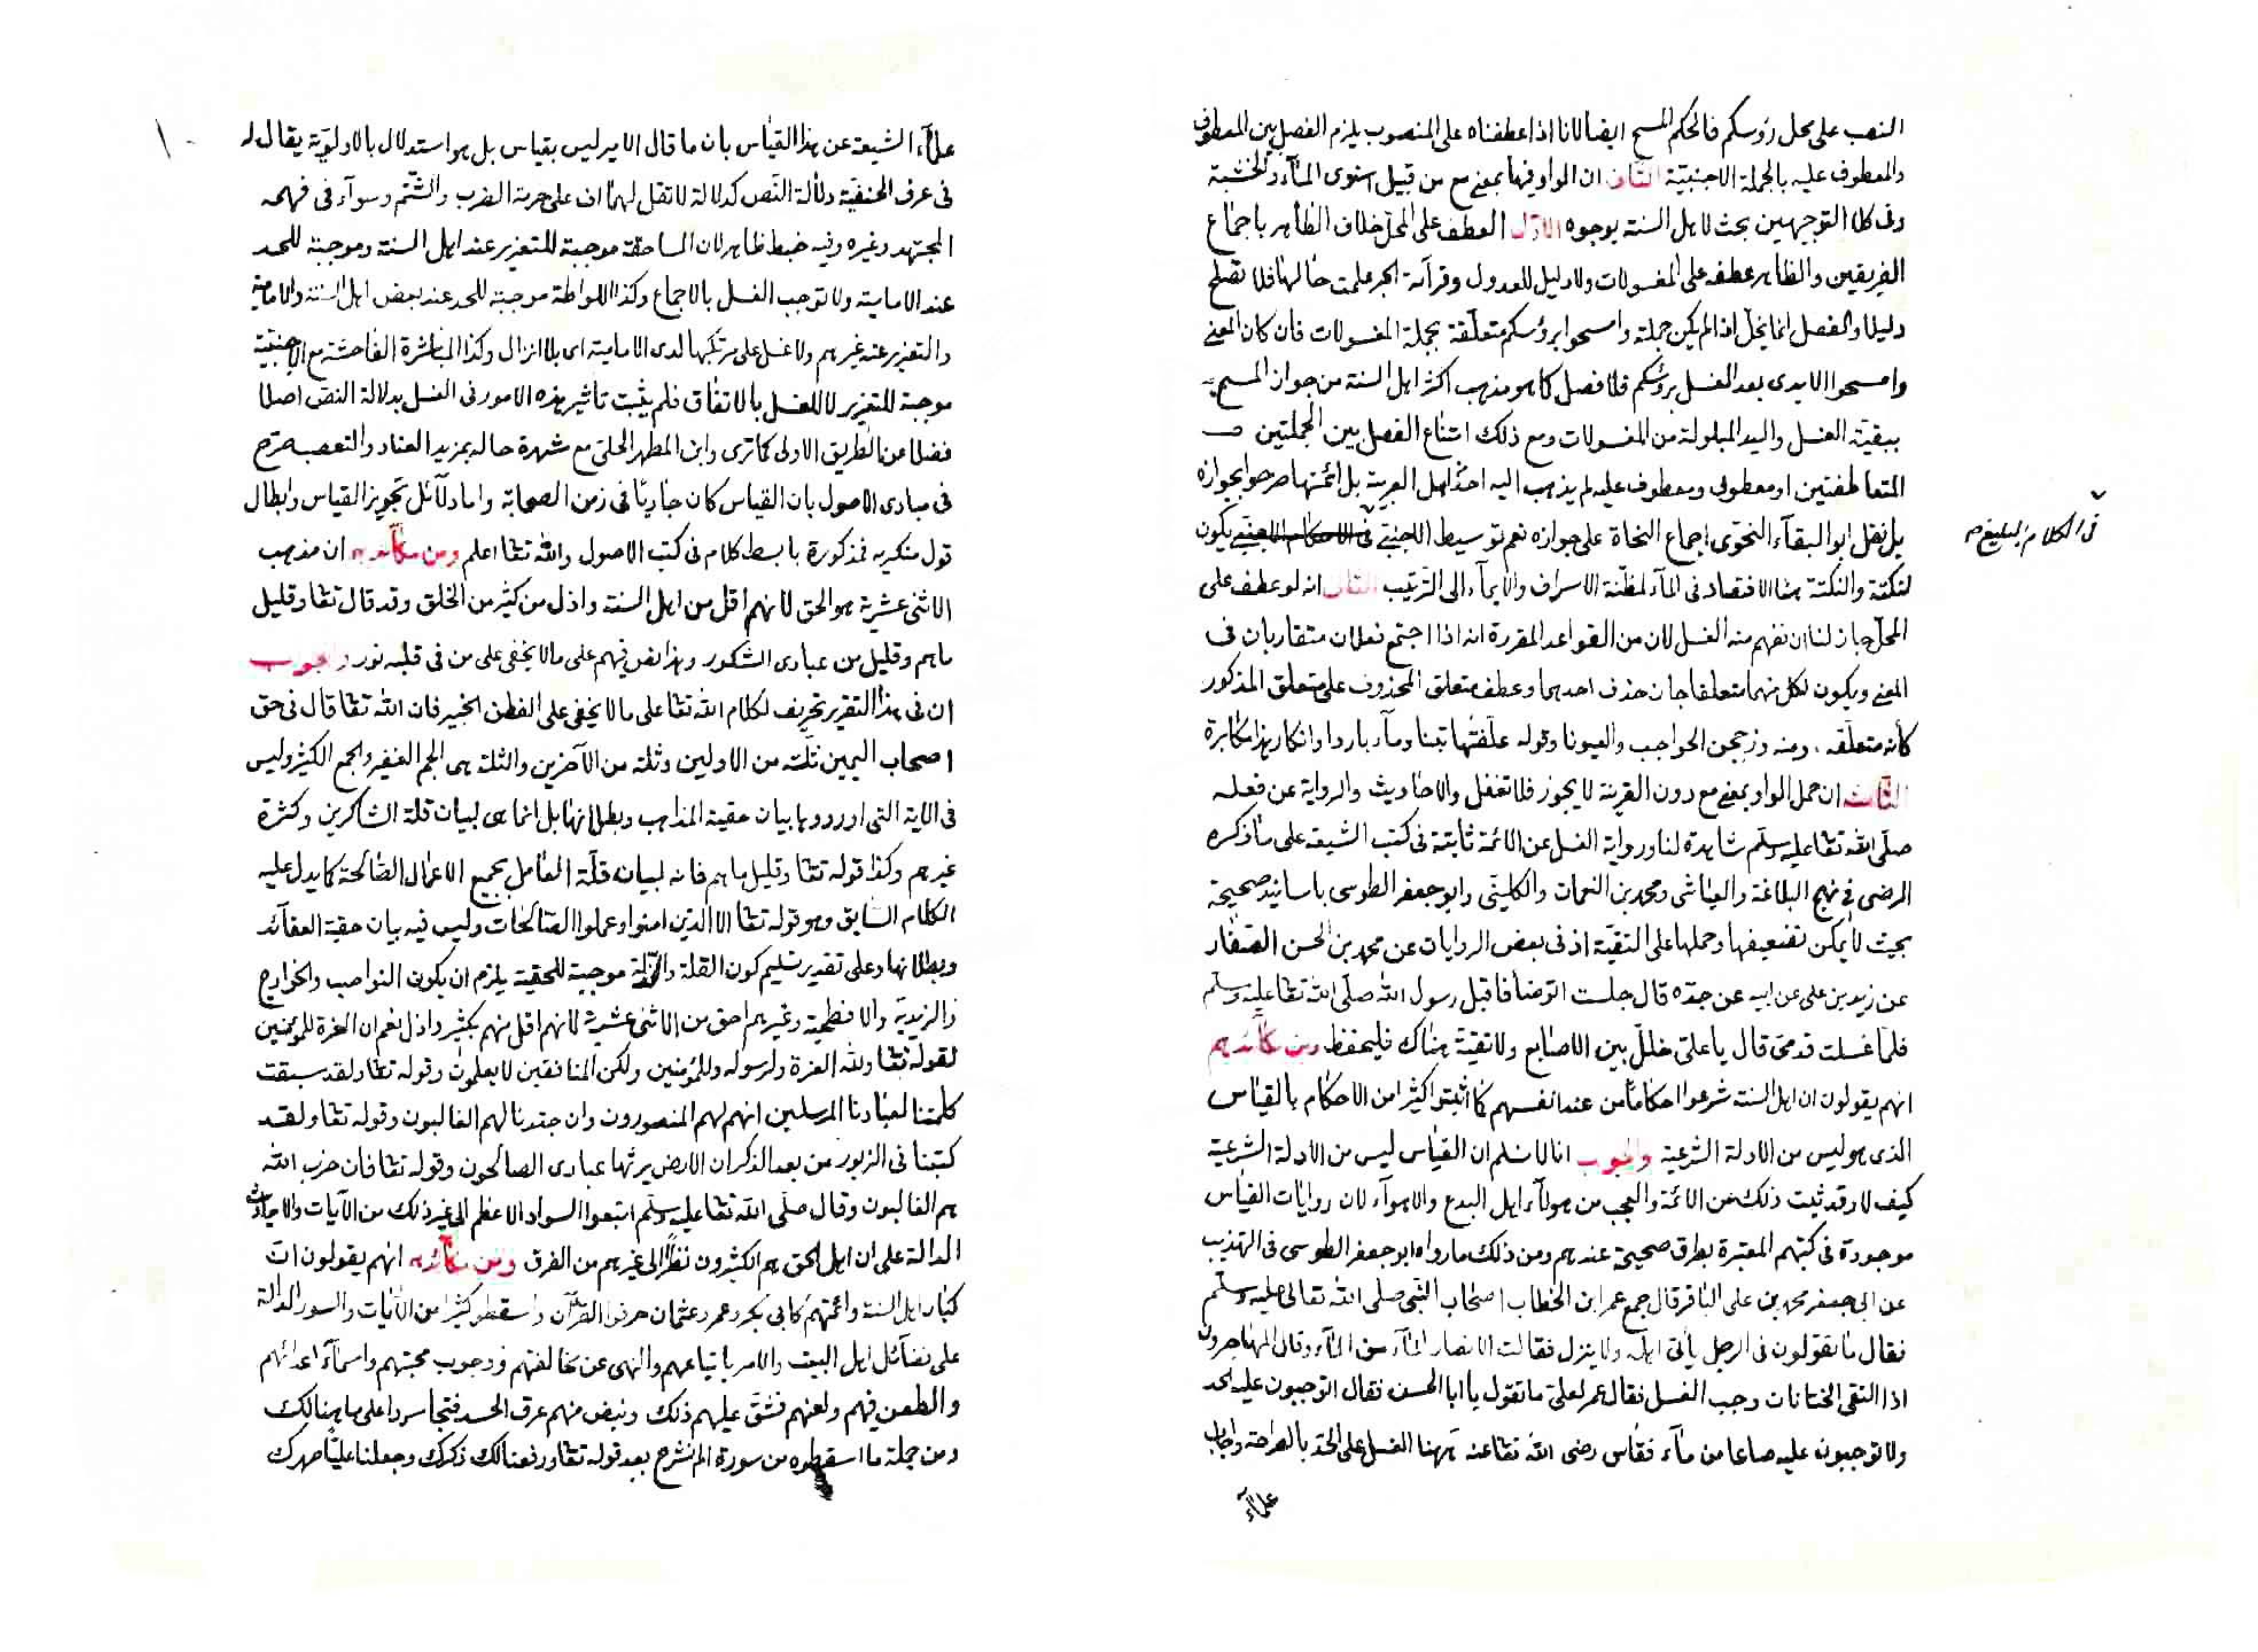 النصب على محل رؤسكم فالحكم المسح ايضا لانا اذا عطفناه على المنصوب يلزم الفصل بين المعطوف
والمعطوف عليه بالجملة الاجنبية الثانى ان الواو فيها بمعنى مع من قبيل استوى الماء والخشبة
وفى كلا التوجيهين بحث لاهل السنة بوجوه الاول العطف على المحل خلاف الظاهر باجماع
الفريقين والظاهر عطفه على المغسولات ولا دليل للعدول وقرآءة الجر علمت حالها فلا تصلح
دليلا والفصل انما يخل اذا لم يكن جملة وامسحوا برؤسكم متعلقة بجملة المغسولات فان كان المعنى
وامسحوا الايدى بعد الغسل برؤسكم فلا فصل كما هو مذهب اكثر اهل السنة من جواز المسح
ببقية الغسل واليد المبلولة من المغسولات ومع ذلك امتناع الفصل بين الجملتين
المتعاطفتين او معطوف ومعطوف عليه لم يذهب اليه احد اهل العربية بل ائمتها صرحوا بجوازه
بل نقل ابو البقآء النحوى اجماع النحاة على جوازه نعم توسيط الاجنبى يكون
فى الكلام البليغ
لنكتة والنكتة هنا الاقتصاد فى المآء لمظنة الاسراف والايمآء الى الترتيب الثانى انه لو عطف على
المحل جاز لنا ان نفهم منه الغسل لان من القواعد المقررة انه اذا اجتمع فعلان متقاربان فى
المعنى ويكون لكل منهما متعلقا جاز حذف احدهما وعطف متعلق المحذوف على متعلق المذكور
كأنه متعلقه ومنه وزججن الحواجب والعيونا وقوله علفتها تبنا ومآء باردا وانكار هذا مكابرة
الثالث ان حمل الواو بمعنى مع دون القرينة لا يجوز فلا تغفل والاحاديث والرواية عن فعله
صلى الله تعا عليه وسلم شاهدة لنا ورواية الغسل عن الائمة ثابتة فى كتب الشيعة على ما ذكره
الرضى فى نهج البلاغة والعياشى ومحمد بن النعمان والكلينى وابو جعفر الطوسى باسانيد صحيحة
بحيث لا يمكن تضعيفها وحملها على التقية اذ فى بعض الروايات عن محمد بن الحسن الصفار
عن زيد بن على عن ابيه عن جده قال جلست اتوضأ فاقبل رسول الله صلى الله تعا عليه وسلم
فلما غسلت قدمى قال يا على خلل بين الاصابع ولا تقية هناك فليحفظ ومن مكائدهم
انهم يقولون ان اهل السنة شرعوا احكاما من عند انفسهم كما اثبتوا كثيرا من الاحكام بالقياس
الذى هو ليس من الادلة الشرعية والجواب انا لا نسلم ان القياس ليس من الادلة الشرعية
كيف لا وقد ثبت ذلك عن الائمة والعجب من هولآء اهل البدع والاهوآء لان روايات القياس
موجودة فى كتبهم المعتبرة بطرق صحيحة عندهم ومن ذلك ما رواه ابو جعفر الطوسى فى التهذيب
عن ابى جعفر محمد بن على الباقر قال جمع عمر ابن الخطاب اصحاب النبى صلى الله تعالى عليه وسلم
فقال ما تقولون فى الرجل يأتى اهله ولا ينزل فقالت الانصار المآء من المآء وقال المهاجرون
اذا التقى الختانان وجب الغسل فقال عمر لعلى ما تقول يا ابا الحسن فقال اتوجبون عليه الحد
ولا توجبون عليه صاعا من مآء فقاس رضى الله تعا عنه ههنا الغسل على الحد بالصراحة واجاب
علمآء
١٠
علمآء الشيعة عن هذا القياس بان ما قال الامير ليس بقياس بل هو استدلال بالاولوية يقال له
فى عرف الحنفية دلالة النص كدلالة لا تقل لهما اف على حرمة الضرب والشتم وسوآء فى فهمه
المجتهد وغيره وفيه خبط ظاهر لان المساحقة موجبة للتعزير عند اهل السنة وموجبة للحد
عند الامامية ولا توجب الغسل بالاجماع وكذا اللواطة موجبة للحد عند بعض اهل السنة والامامية
والتعزير عند غيرهم ولا غسل على مرتكبها لدى الامامية اى بلا انزال وكذا المباشرة الفاحشة مع الاجنبية
موجبة للتعزير لا للغسل بالاتفاق فلم يثبت تاثير هذه الامور فى الغسل بدلالة النص اصلا
فضلا عن الطريق الاولى كما ترى وابن المطهر الحلى مع شهرة حاله بمزيد العناد والتعصب صرح
فى مبادى الاصول بان القياس كان جاريا فى زمن الصحابة واما دلآئل تجويز القياس وابطال
قول منكريه فمذكورة بابسط كلام فى كتب الاصول والله تعا اعلم ومن مكآئدهم ان مذهب
الاثنى عشرية هو الحق لانهم اقل من اهل السنة واذل من كثير من الخلق وقد قال تعا وقليل
ما هم وقليل من عبادى الشكور وهذا نص فيهم على ما لا يخفى على من فى قلبه نور والجواب
ان فى هذا التقرير تحريف لكلام الله تعا على ما لا يخفى على الفطن الخبير فان الله تعا قال فى حق
اصحاب اليمين ثلة من الاولين وثلة من الآخرين والثلة هى الجم الغفير والجمع الكثير وليس
فى الاية التى اوردوها بيان حقية المذاهب وبطلانها بل انما هى لبيان قلة الشاكرين وكثرة
غيرهم وكذا قوله تعا وقليل ما هم فانه لبيان قلة العامل بجميع الاعمال الصالحة كما يدل عليه
الكلام السابق وهو قوله تعا الا الذين امنوا وعملوا الصالحات وليس فيه بيان حقية العقآئد
وبطلانها وعلى تقدير تسليم كون القلة والذلة موجبة للحقية يلزم ان يكون النواصب والخوارج
والزيدية والافطحية وغيرهم احق من الاثنى عشرية لانهم اقل منهم بكثير واذل نعم ان العزة للمؤمنين
لقوله تعا ولله العزة ولرسوله وللمؤمنين ولكن المنافقين لا يعلمون وقوله تعا ولقد سبقت
كلمتنا لعبادنا المرسلين انهم لهم المنصورون وان جندنا لهم الغالبون وقوله تعا ولقد
كتبنا فى الزبور من بعد الذكر ان الارض يرثها عبادى الصالحون وقوله تعا فان حزب الله
هم الغالبون وقال صلى الله تعا عليه وسلم اتبعوا السواد الاعظم الى غير ذلك من الآيات والاحاديث
الدالة على ان اهل الحق هم الكثيرون نظرا الى غيرهم من الفرق ومن مكآئدهم انهم يقولون ان
كبار اهل السنة وائمتهم كابى بكر وعمر وعثمان حرفوا القرآن واسقطو كثيرا من الآيات والسور الدالة
على فضآئل اهل البيت والامر باتباعهم والنهى عن مخالفتهم ووجوب محبتهم واسمآء اعدائهم
والطعن فيهم ولعنهم فشق عليهم ذلك ونبض منهم عرق الحسد فتجاسروا على ما هنالك
ومن جملة ما اسقطوه من سورة الم نشرح بعد قوله تعا ورفعنا لك ذكرك وجعلنا عليا صهرك